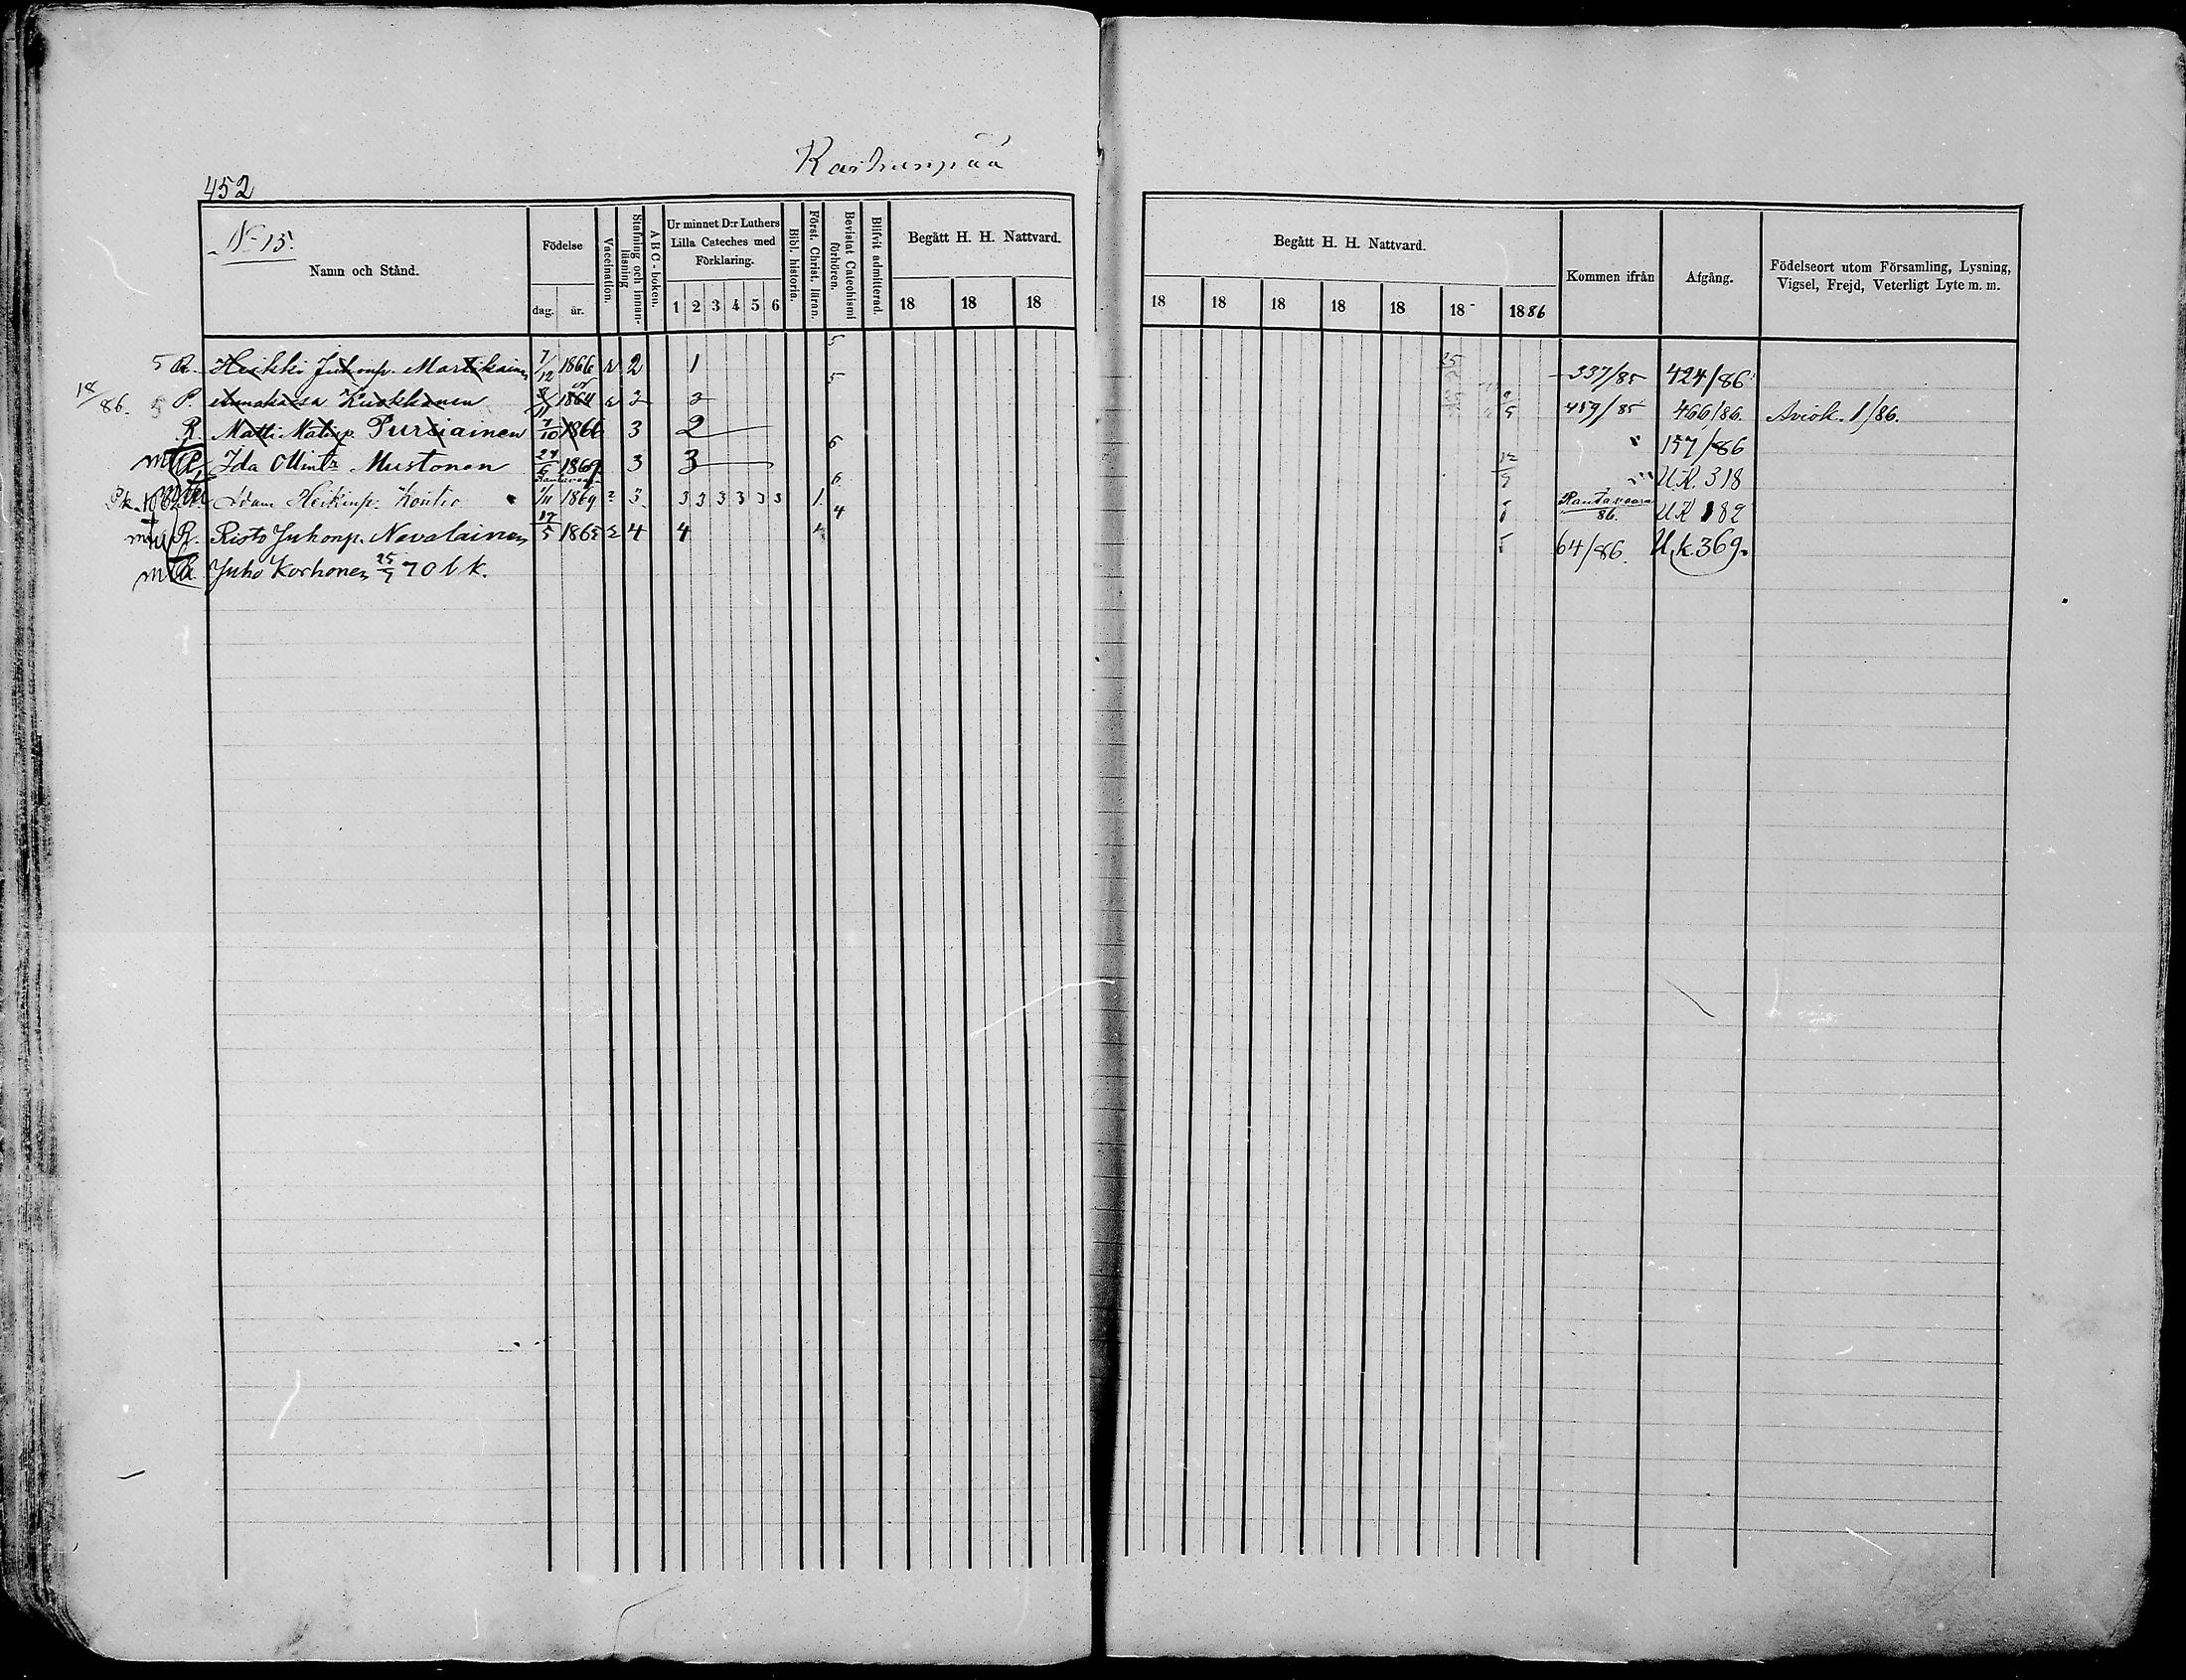 Karhunpää
452
N 15.
Namn och Stånd.
Födelse
dag. år.
Vaccination.
Stafning och innanläsning
A B C - boken.
Ur minnet D:r Luthers Lilla Cateches med Förklaring.
1 2 3 4 5 6
Bibl. historia.
Först. Christ. läran.
Bevistat Catechismi förhören.
Blifvit admitterad.
Begått H. H. Nattvard.
18 18 18
Begått H. H. Nattvard.
18 18 18 18 18 18 1886
Kommen ifrån
Afgång.
Födelseort utom Församling, Lysning, Vigsel, Frejd, Veterligt Lyte m. m.
5 R. Heikki Juhonp. Martikainen 7/12 1866 2 1 5 337/85 424/86
18/86. P. Annakaisa Kuokkanen 1864 2 2 5 459/85 466/86. Aviok. 1/86.
R. Matti Matinp. Pursiainen 7/10 1866 3 2 " 157/86
R. Ida Ollintr Mustonen 24/6 1869 3 3 6 " UK. 318
Adam Heikinp. Kontio 1/11 1869 2 3 3 3 3 3 3 3 1. 6 Rautavaara 86. UK 182
R. Risto Juhonp. Nevalainen 17/5 1865 2 4 4 4 64/86. Uk 369.
R. Juho Korhonen 25/9 70 l k.